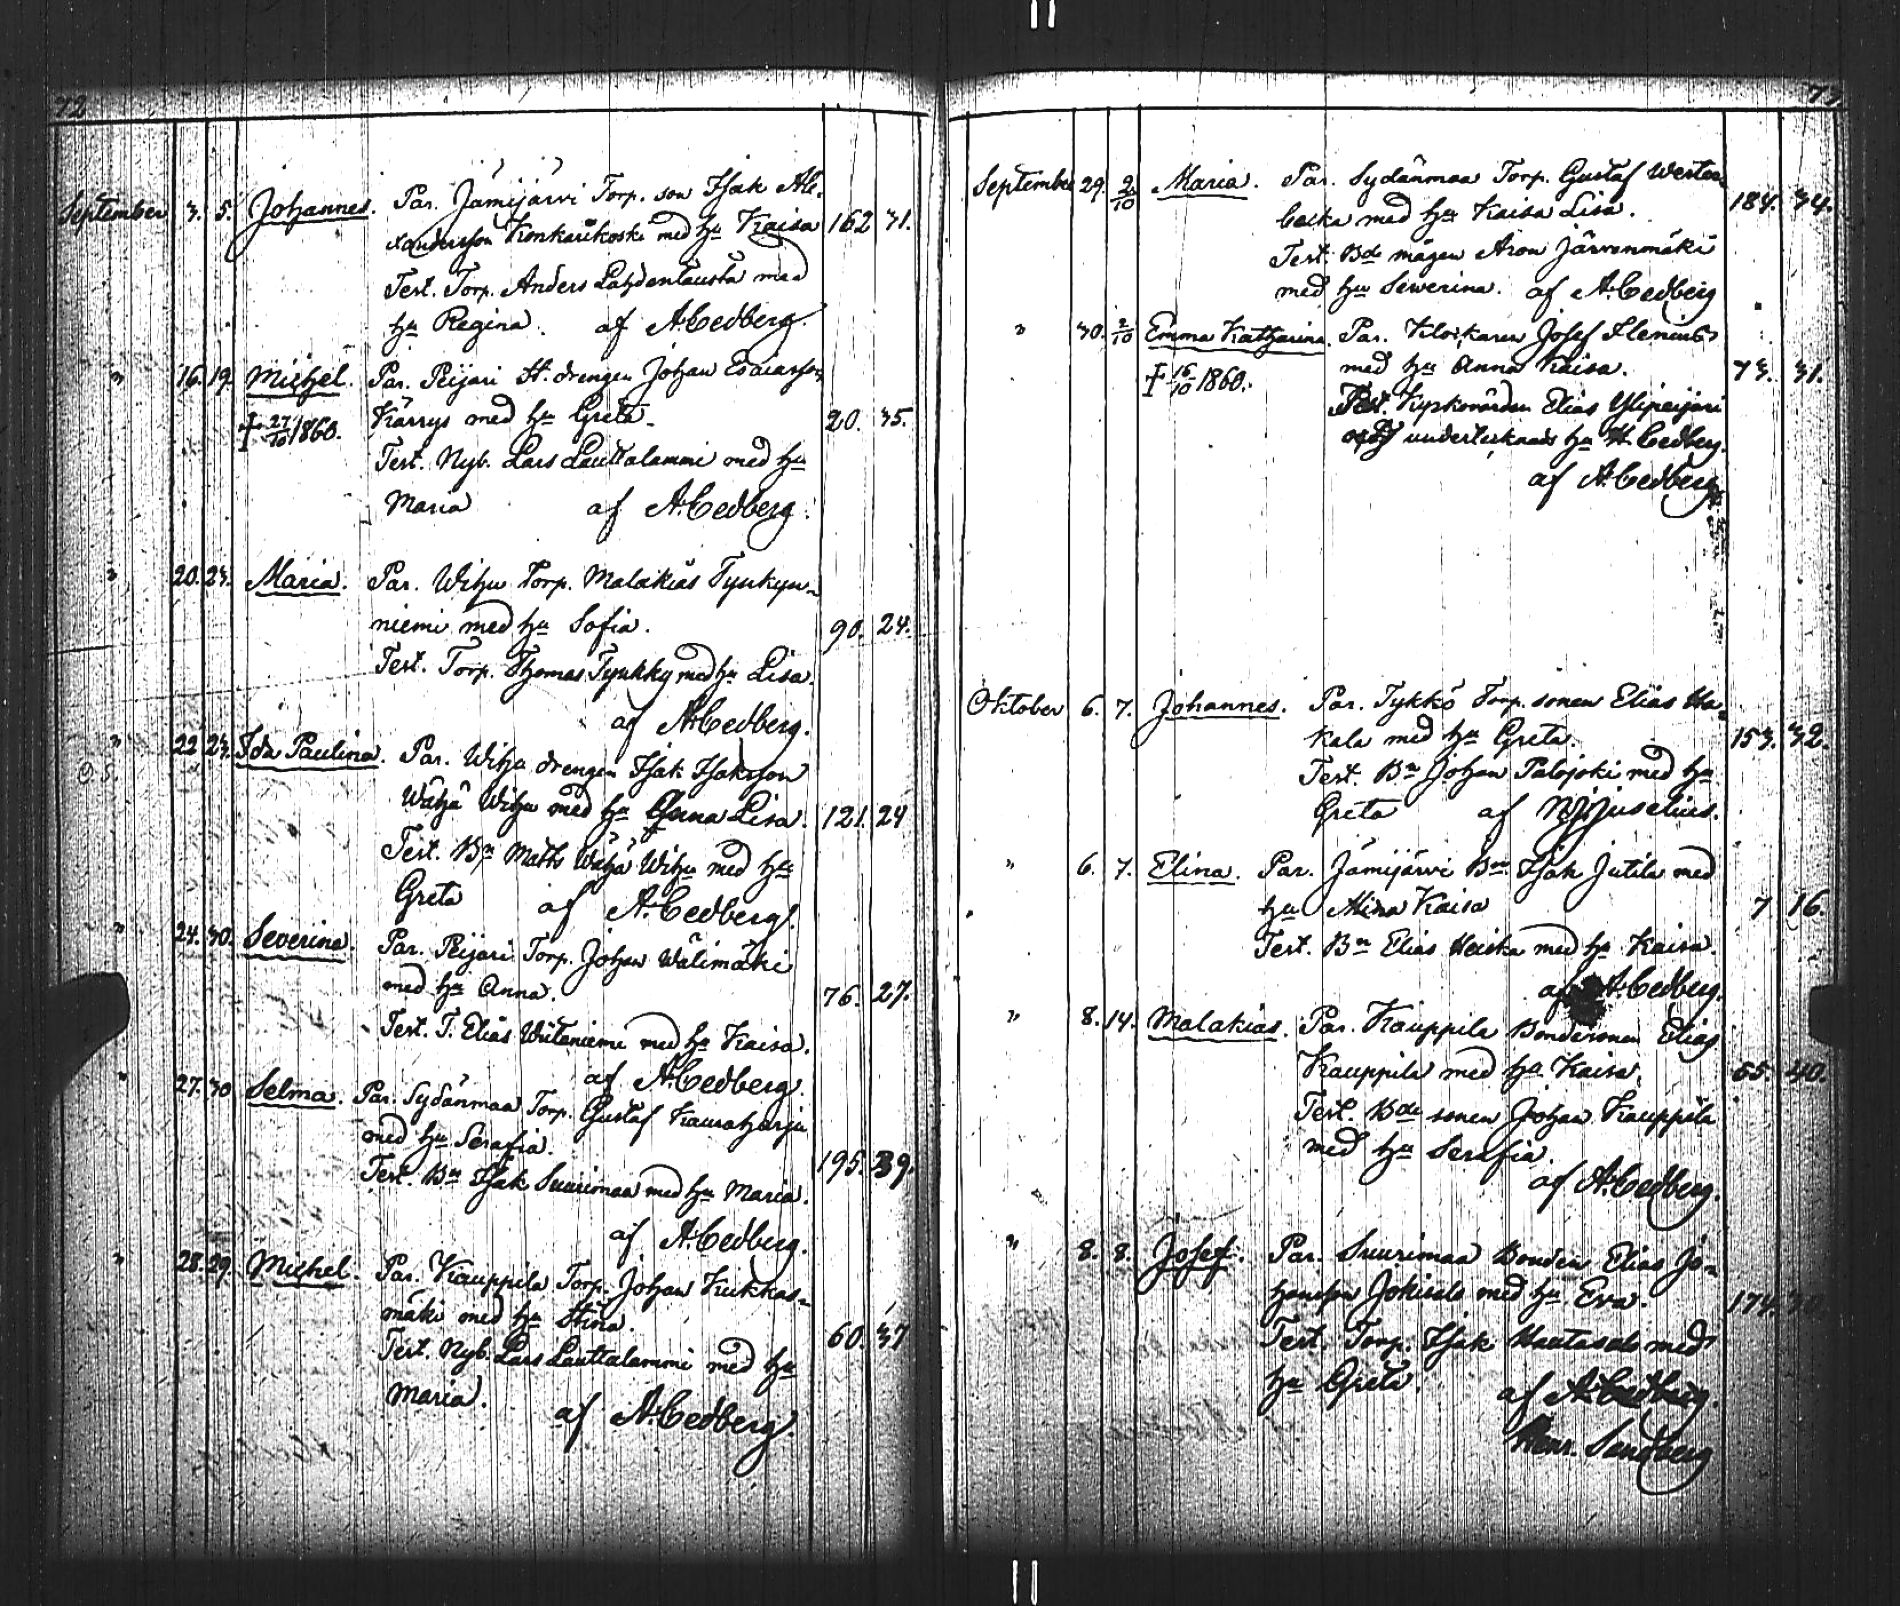 72
September 3. 5. Johannes. Par. Jämijärvi Torp. son Isak Ale-
xandersson Konkarikoski med hu Kaisa 162 31.
Test. Torp. Anders Lahdentausta med
hu Regina. af A.Cedberg.
" 16. 19. Michel. Par. Peijari St. drengen Johan Esaiasson
† 27/10 1860. Kärrys med hu Greta. 20. 35.
Test. Nyb. Lars Lauttalammi med hu
Maria af A.Cedberg.
" 20. 23. Maria. Par. Wihu Torp. Malakias Tyukyn-
niemi med hu Sofia. 90. 24.
Test. Torp. Thomas Tyukky med hu Lisa.
af A.Cedberg.
" 22 23. Ida Paulina. Par. Wihu drengen Isak Isaksson
O.S. Wähä Wihu med hu Anna Lisa. 121. 24
Test. Bn Matts Wähä Wihu med hu
Greta af A.Cedberg.
" 24. 30. Severina. Par. Peijari Torp. Johan Wälimäki
med hu Anna. 76. 27.
Test. T. Elias Wiitaniemi med hu Kaisa.
af A.Cedberg.
" 27. 30 Selma. Par. Sydänmaa Torp. Gustaf Kauraharju
med hu Serafia. 195. 39.
Test. Bn Isak Suurimaa med hu Maria.
af A.Cedberg.
" 28. 29. Michel. Par. Kauppila Torp. Johan Kukkas-
mäki med hu Stina. 60. 37
Test. Nyb. Lars Lauttalammi med hu
Maria. af A.Cedberg.
73
September 29. 2/10 Maria. Par. Sydänmaa Torp. Gustaf Wester-
backa med hu Kaisa Lisa. 184. 34.
Test. Bde mågen Aron Järvenmäki
med hu Sewerina. af A.Cedberg
" 30. 2/10 Emma Katharina. Par. Klockaren Josef Flemius
† 16/10 1860. med hu Anna Kaisa. 73. 31.
Test. Kyrkovärden Elias Ylipeijari
och undertecknads hu H. Cedberg.
af A.Cedberg
Oktober 6. 7. Johannes. Par. Tykkö Torp. sonen Elias Ha-
kala med hu Greta. 153. 32.
Test. Bn Johan Palojoki med hu
Greta af Juselius.
" 6. 7. Elina. Par. Jämijärvi Bn Isak Jutila med
hu Miina Kaisa 7 16.
Test. Bn Elias Heiska med hu Kaisa.
af A.Cedberg.
" 8. 14. Malakias. Par. Kauppila Bondesonen Elias
Kauppila med hu Kaisa. 55. 40.
Test. Bde sonen Johan Kauppila
med hu Serafia.
af A.Cedberg.
" 8. 8. Josef. Par. Suurimaa Bonden Elias Jo-
hansson Jokisalo med hu Eva. 174.
Test. Torp. Isak Hautasalo med
hu Greta. af A.Cedberg.
Henr. Sandberg